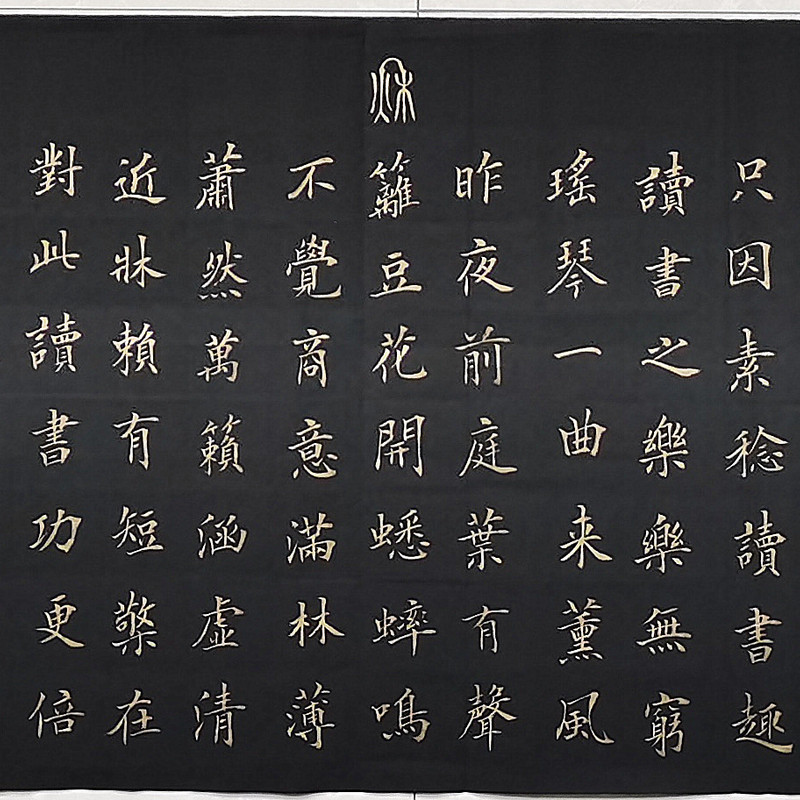 只因素稔讀書趣
讀書之樂樂無窮
瑤琴一曲来薰風
昨夜前庭葉有聲
籬豆花開蟋蟀鳴
不覺商意滿林薄
蕭然萬籟涵虛清
近牀賴有短檠在
對此讀書功更倍